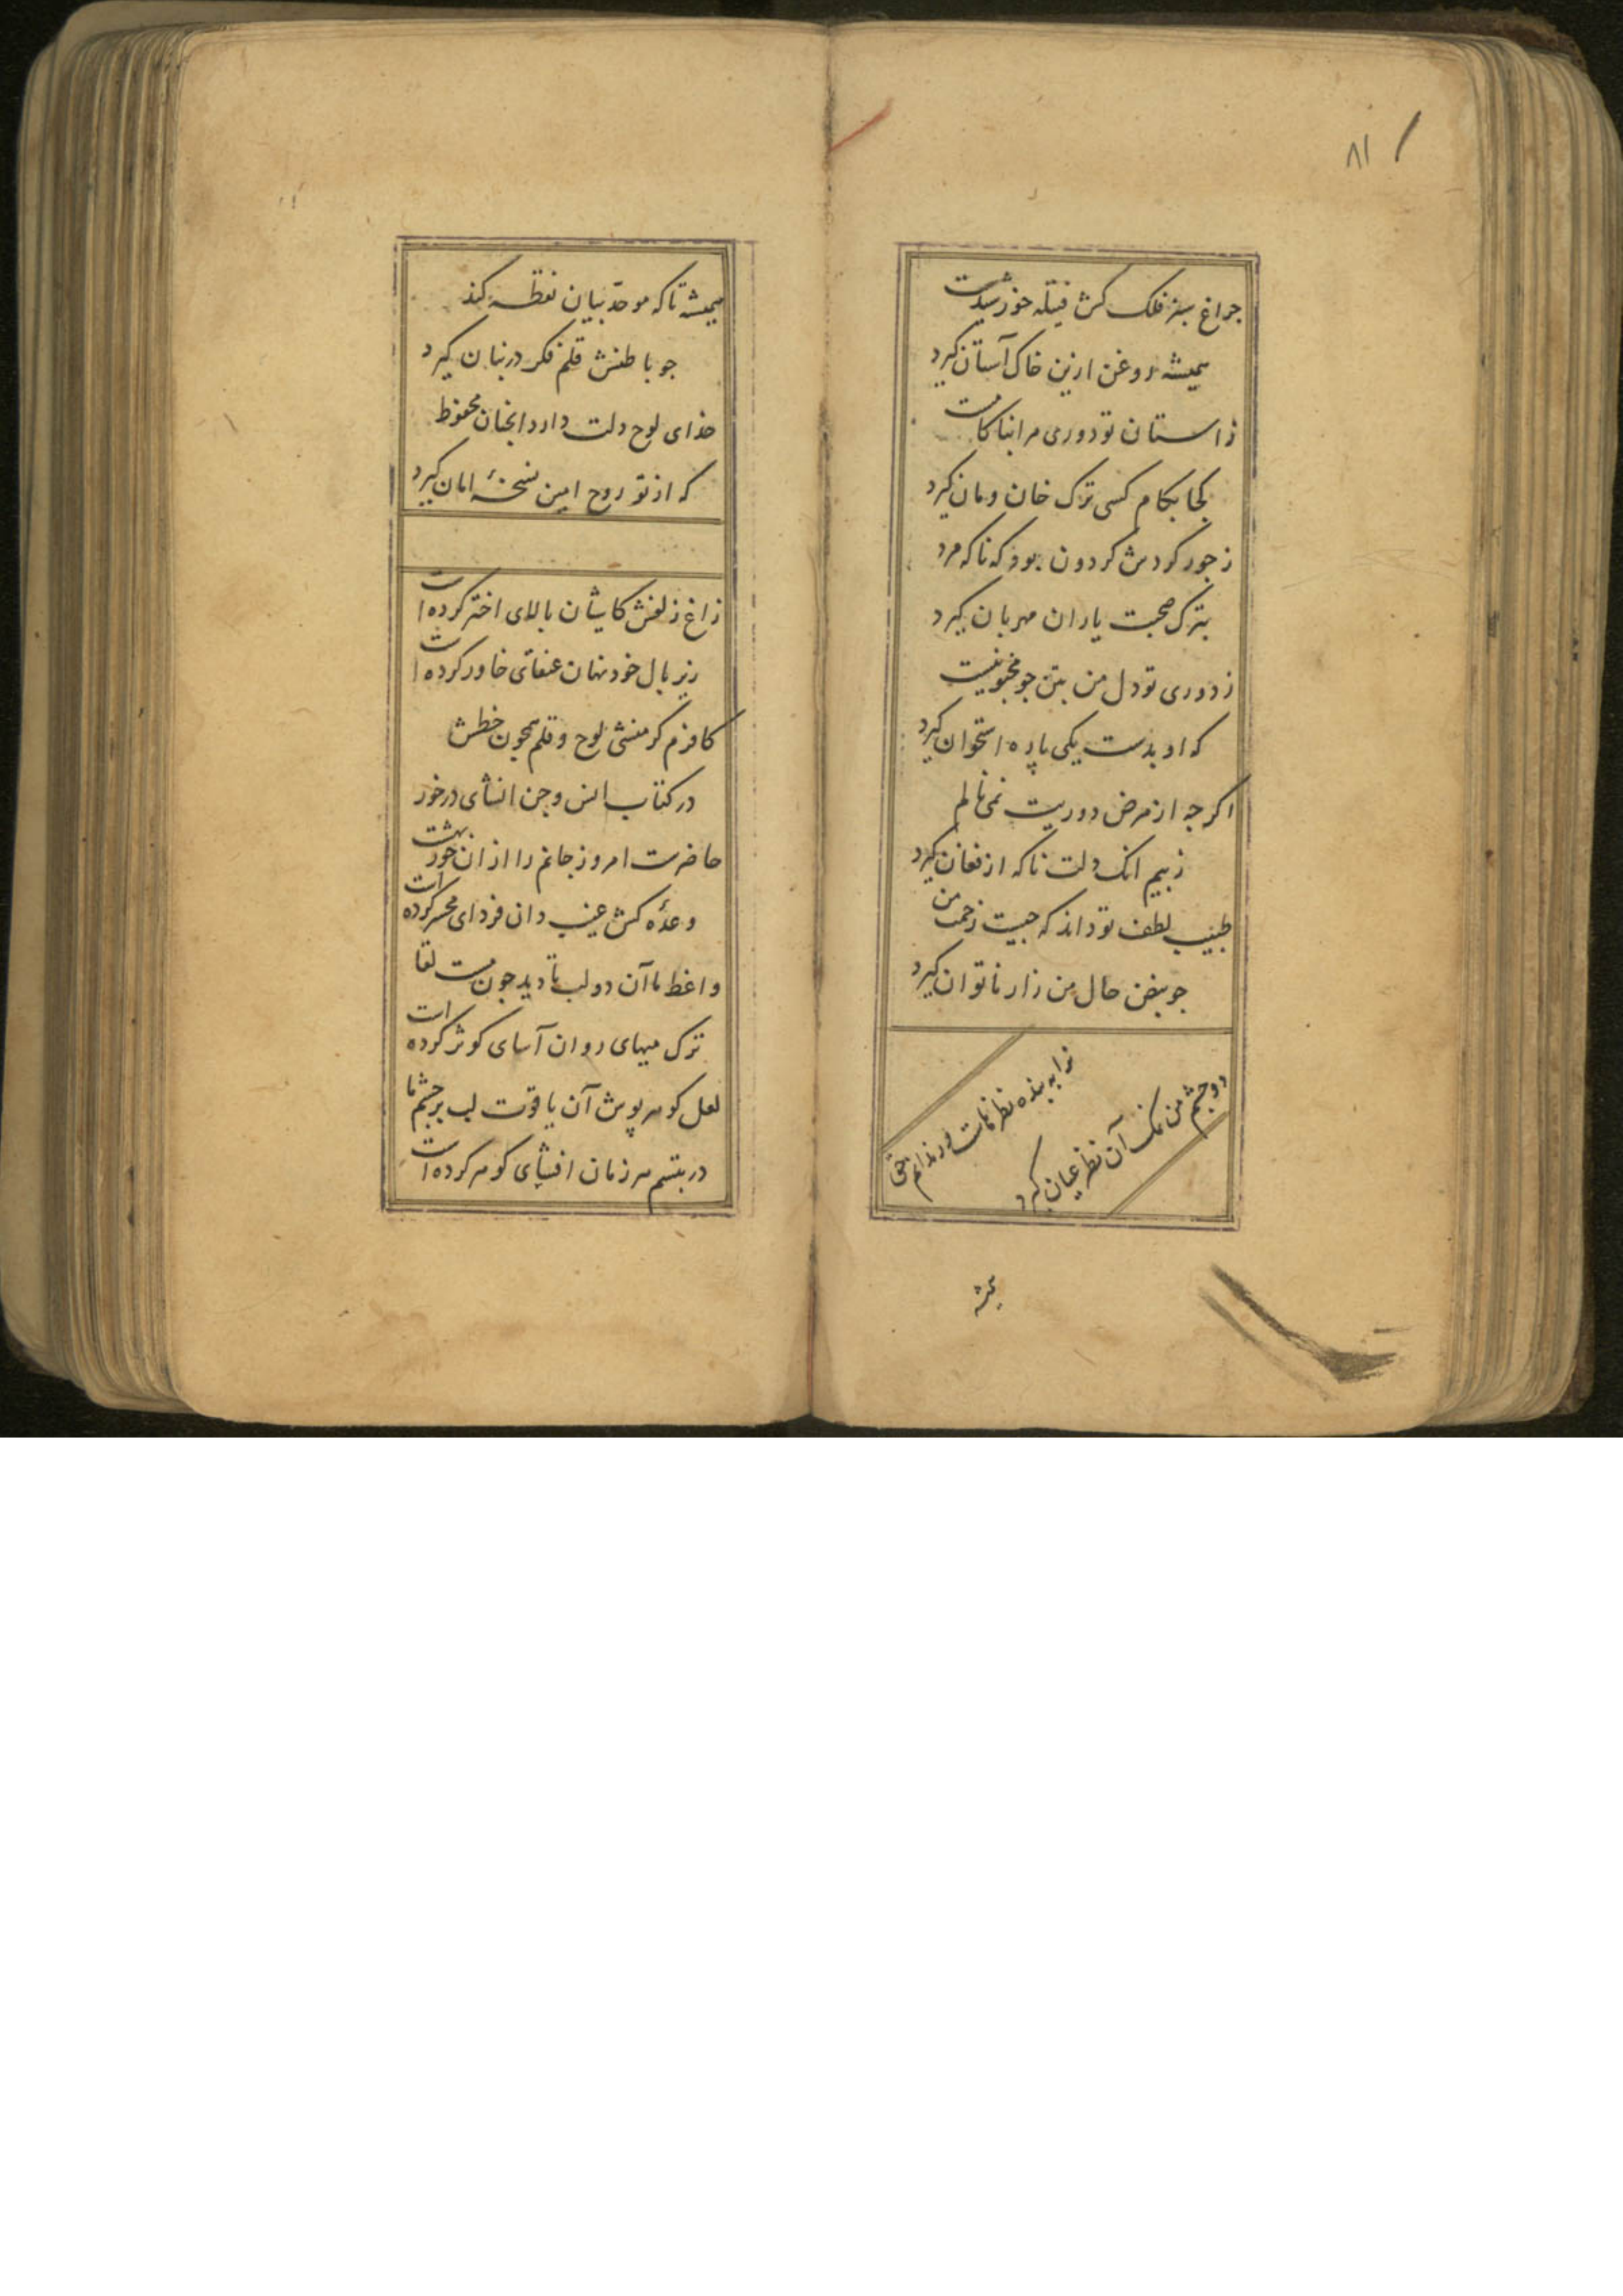 ٨١
جراغ سبز فلک کش فتیله خورشیدست
همیشه روغن ازین خاک آستان کیرد
ز استان تو دوری مرا نه کامست
کجا بکام کسی ترک خان و مان کیرد
ز جور کردش کردون بود که ناکه مرد
بترک صحبت یاران مهربان کیرد
ز دوری تو دل من بتن جو محبوسیست
که او بدست یکی پاره استخوان کیرد
اکرجه از مرض دوریت نمی نالم
ز بیم انک دلت ناکه از فغان کیرد
طبیب لطف تو داند که جیست زحمت من
جو نبض حال من زار ناتوان کیرد
ترا به بنده نظرهاست ور ندانم حق
دو جشم من نمک آن نظر عیان کیرد
همیشه
همیشه تا که موحد بیان نقطه کند
جو باطنش قلم فکر در بنان کیرد
خدای لوح دلت دارد انجنان محفوظ
که از تو روح امین نسخهٔ امان کیرد
زاغ زلفش کاشیان بالای اختر کرده است
زیر بال خود نهان عنقای خاور کرده است
کافرم کر منشی لوح و قلم همجون خطش
در کتاب انس و جن انشای درخور
حاضرست امروز جانم را از ان حور بهشت
وعدهٔ کش غیب دان فردای محشر کرده است
واعظ ما آن دو لب تا دید جون مست لقا
ترک میهای روان آسای کوثر کرده است
لعل کوهر پوش آن یاقوت لب بر جشم ما
در تبسم هر زمان افشای کوهر کرده است